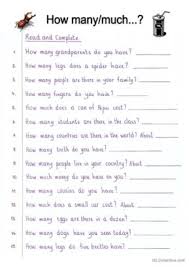 How many/much...?
Read and Complete
1. How many grandparents do you have?
2. How many legs does a spider have?
3. How many people are there in your family?
4. How many fingers do you have?
5. How much does a can of Pepsi cost?
6. How many students are there in this class? About
7. How many countries are there in the world? About
8. How many teeth do you have?
9. How many people live in your country? About
10. How much money do you have?
11. How many cousins do you have?
12. How many eggs are there in a dozen?
13. How many days does one year have? About
14. How many eggs are there in a dozen?
15. How many legs do five beetles have?